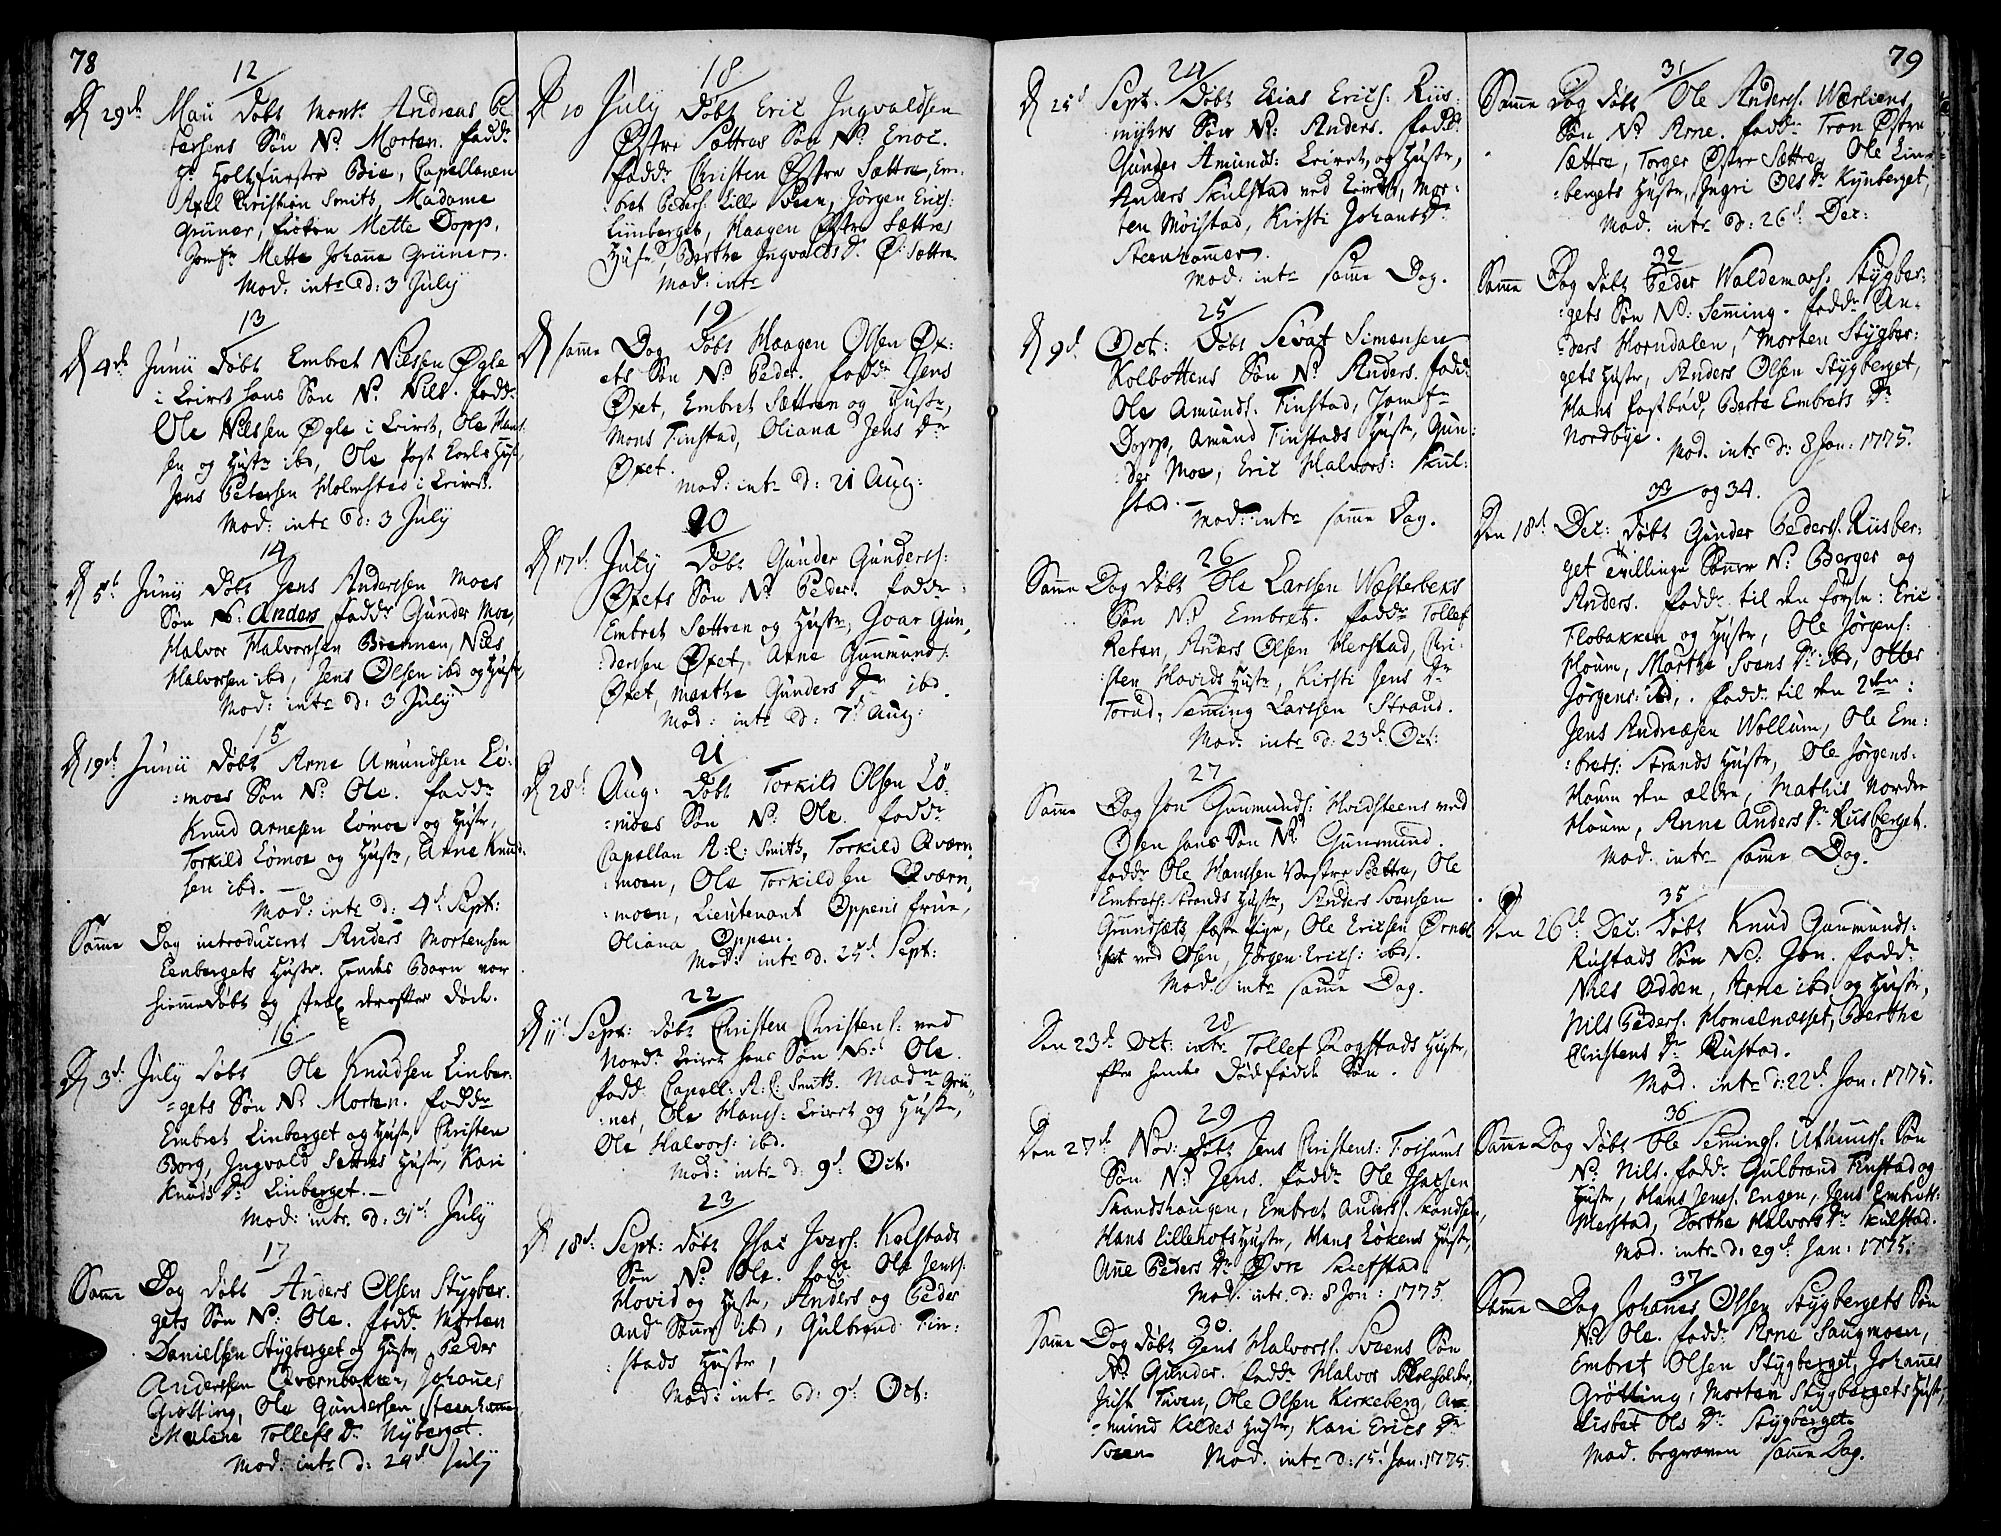 78
12
D 29de Maii døbt Monsr Andreas Pe
tersens Søn No Morten. fadd:
Hr Holtzfurster Bie, Capellanen
Axel Christian Smith, Madame
Grüner, frøken Mette Dopp,
Jomfr Mette Johane Grüner.
Mod: intr d: 3 July
13
D 4de Junii døbt Embret Nilsen Øgle
i Leiret hans Søn No Nils. fadd:
Ole Nilssen Øgle i Leiret, Ole Hans
sen og Hustr ibd, Ole Post Karls Hust,
Jens Petersen Holmstad i Leiret.
Mod: intr d: 3 July
14
D 5t Junii døbt Jens Anderssen Moes
Søn No: Anders fadd: Gunder Moe,
Halvor Halvorsen Brennen, Nils
Halvorsen ibd, Jens Olsen ibd og Hustr,
Mod: intr d: 3 July
15
D 19de Junii døbt Arne Amundsen Lø:
:moes Søn No Ole. fadd:
Knud Arnesen Lømoe og Hustr,
Torkild Lømoe og Hustr, Arne Knud:
sen ibd. —
Mod: intr d: 4d Sept:
Samme Dag introduceret Anders Mortensen
Eenbergets Hustr. Hendes Barn var
hiemmedøbt og strax derefter døde.
16
D 3d: July døbt Ole Knudsen Linber:
:gets Søn No Morten. fadd:
Embret Linberget og Hustr, Christen
Borg, Ingvald Settres Hustr, Kari
Knuds Dr Linberget. —
Mod: intr. d: 31d July
17
Samme Dag døbt Anders Olsen Stygber:
gets Søn No: Ole. fadd: Morten
Danielsen Stygberget og Hustr, Peder
Anderssen Qværnbakken, Johanes
Grøtting, Ole Gundersen Steenhamer
Malene Tollefs Dr Nyberget.
Mod: intr d: 24d July
18
D 10 July døbt Eric Ingvaldsen
Østre Sættres Søn No Enoc.
fadd: Christen Østre Sættre, Em:
:bret Peders: Lille Sveen, Jørgen Erics:
Linberget, Haagen Østre Sættres
Hustr Berthe Ingvalds Dr Ø: Sættre
Mod: intr
19
D samme Dag døbt Haagen Olsen Øx:
ets Søn No Peder. fadd: Jens
Øxet, Embret Sættren og Hustr,
Mons Finstad, Oliana Jens Dr
Øxet.
Mod: intr d: 21 Aug:
20
D 17d. July døbt Gunder Gunderss:
Øxets Søn No Peder. fadd:
Embret Sættren og Hustr, Goar Gun,
:dersen Øxet, Arne Gunmunds:
Øxet, Marthe Gunders Dr ibd.
Mod: intr d: 7d Aug:
21
D 28d Aug: døbt Torkild Olsen Lø:
:moes Søn No. Ole. fadd:
Capellan A: C: Smith, Torkild Qværn,
:moen, Ole Torkildsen Qværn,
:moen, Lieutenant Oppens frue,
Oliana Oppen.
Mod: intr d. 25d Sept:
22
D 11t Sept: døbt Christen Christens: ved
Nordr Leiret hans Søn No: Ole.
fadd: Capell: A: C: Smith. Madm Grü:
:ner, Ole Hanss: Leiret og Hustr,
Ole Halvors: ibd.
Mod: intr d: 9d Oct:
23
D 18d: Sept: døbt Isac Ivers: Kolstads
Søn No: Ole. fadd: Ole Jenss:
Hovid og Hustr, Anders og Peder
And: Sønner ibd, Gulbrand Fin:
:stads Hustr,
Mod: intr d: 9d Oct:
79
24
D 25d Sept: døbt Elias Erics: Riis:
myhrs Søn No: Anders. fadd:
Gunder Amunds: Leiret, og Hustr,
Anders Skulstad ved Leiret, Mor:
ten Moistad, Kirsti Johans Dr
Steenhamer.
Mod: intr samme Dag.
25
D 9d. Oct: døbt Sevat Simensen
Kolbottens Søn No Anders. fadd:
Ole Amunds. Finstad, Jomfr
Dopp, Amund Finstads Hustr, Gun:
:der Moe, Eric Halvors: Skul:
stad. —
Mod: intr samme Dag.
26
Samme Dag døbt Ole Larssen Wæsterbeks
Søn No: Embret. fadd: Tollef
Reten, Anders Olsen Herstad, Chri:
:sten Hovids Hustr, Kirsti Jens Dr
Torud, Semming Larssen Strand.
Mod: intr d: 23d: Oct:
27
Samme Dag Jon Gunmunds: Hvidsteens ved
Osen hans Søn No Gunmund.
fadd: Ole Hanssen Vestre Settre, Ole
Embrets: Strands Hustr, Anders Svensen
Grundsæth, Ole Ericsen Ørnæs
set ved Osen, Jørgen Erics: ibd.
Mod. intr samme Dag.
28
Den 23d Oct: intr Tollef Rogstads Hustr,
efter hendes dødfødde Søn.
29
Den 27d Nov: døbt Jens Christens: Torsmis
Søn No: Jens. fadd: Ole Isacsen
Skandshaugen, Embret Anders: Skandsen,
Hans Lillehofs Hustr, Hans Løkens Hustr,
Anne Peders Dr Øvre Skiefstad
Mod: intr d: 8 Jan: 1775.
30.
Samme Dag døbt Jens Halvorss. Sveens Søn
No Gunder. fadd: Halvor
Just Tveen, Ole Olsen Kirkeberg, A:
:mund Kildes Hustr, Kari Erics Dr
Sveen
Mod. intr d: 15. Jan. 1775.
31
Samme Dag døbt Ole Anderss. Wærliens
Søn No Arne. fadd: Tron Østre
Sættre, Torger Østre Sættre, Ole Lin:
:bergets Hustr, Ingri Ols Dr Kynberget,
Mod. intr d: 26d. Dec:
32
Samme Dag døbt Peder Waldemars. Stygber:
:gets Søn No: Semming. fadd: An:
:ders Horndalen, Morten Stygber:
gets Hustr, Anders Olsen Stygberget,
Hans Postbud, Berte Embrets Dr
Nordbye.
Mod. intr d: 8 Jan: 1775.
33 og 34.
Den 18d. Dec: døbt Gunder Pederss. Riisber:
get Tvillinge Sønner No Berger og
Anders. fadd: til den første: Eric
Flobakken og Hustr, Ole Jørgens:
Houm, Marthe Svens Dr ibd, Otter
Jørgens: ibd,. fadd: til den 2den:
Jens Andreæsen Wollum, Ole Em:
:brets: Strands Hustr, Ole Jørgens:
Houm den ældre, Mathis Nordre
Houm, Anne Anders Dr Riisberget.
Mod: intr samme Dag.
35
Den 26d Dec: døbt Knud Gunmunds:
Rustads Søn No: Jon. fadd:
Nils Odden, Arne ibd og Hustr,
Nils Peders. Homelnæsset, Berthe
Christens Dr Rustad.
Mod. intr d: 22d. Jan: 1775.
36
Samme Dag døbt Ole Semmings. Uthuuss. Søn
No. Nils. fadd: Gulbrand Finstad og
Hustr, Hans Jenss. Engen, Jens Embrets:
Herstad, Dorthe Halvors Dr Skulstad.
Mod. intr d: 29d. Jan: 1775.
37
Samme Dag Johanes Olsen Stygbergets Søn
No. Ole. fadd: Arne Haugmoen,
Embret Olsen Stygberget, Johannes
Grøtting, Morten Stygbergets Hustr,
Lisbet Ols Dr Stygberget.
Mod. begraven samme Dag.